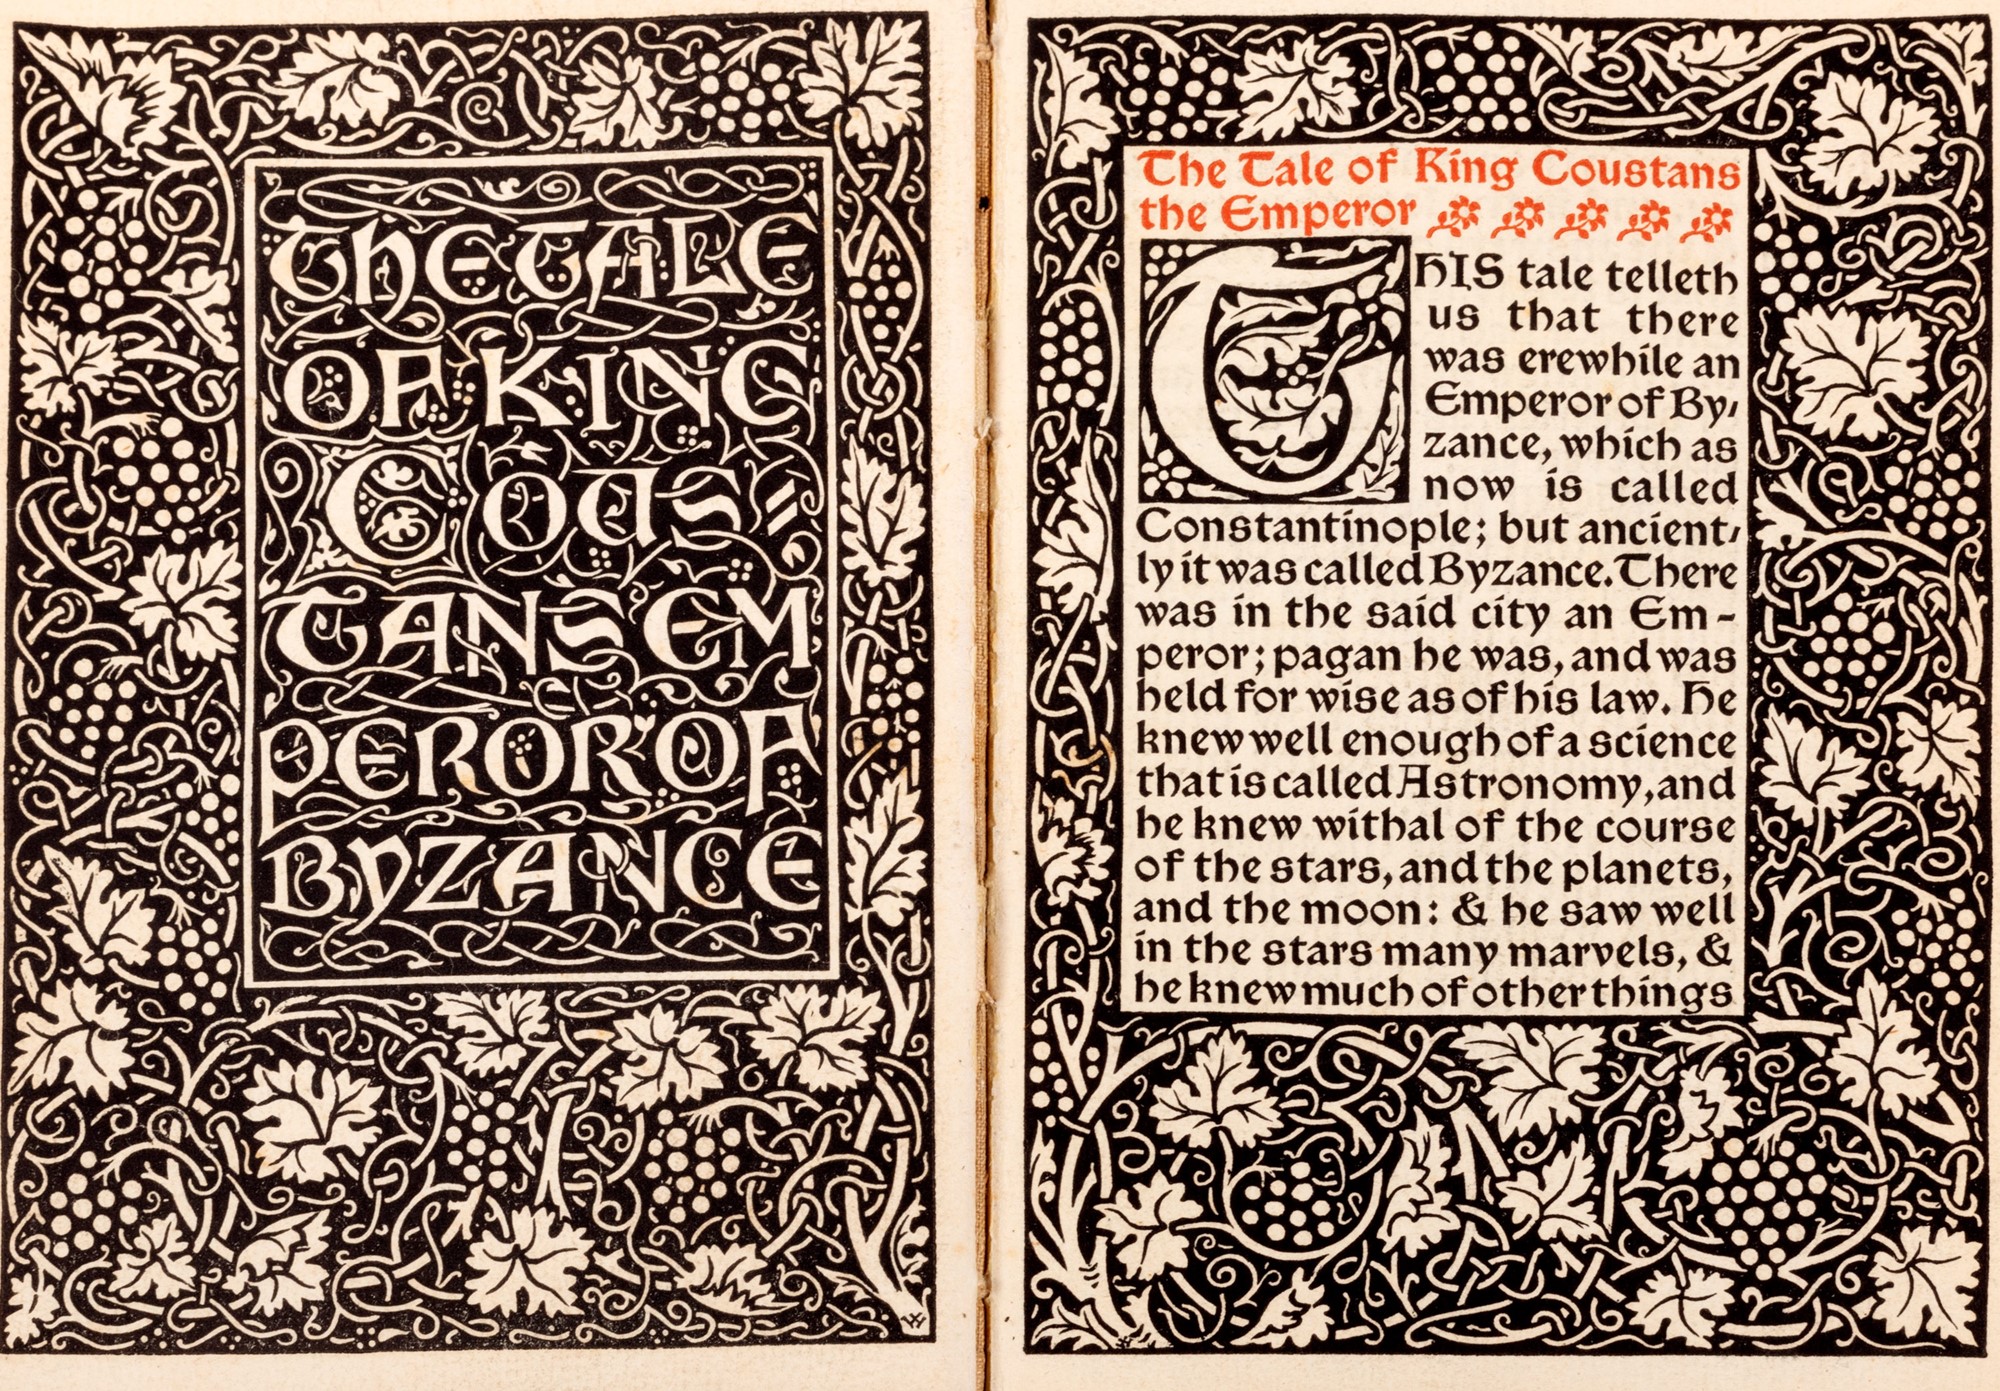 THE TALE
OF KING
COUS=
TANS EM
PEROR OF
BYZANCE
The Tale of King Coustans
the Emperor
THIS tale telleth
us that there
was erewhile an
Emperor of By-
zance, which as
now is called
Constantinople; but ancient-
ly it was called Byzance. There
was in the said city an Em-
peror; pagan he was, and was
held for wise as of his law. He
knew well enough of a science
that is called Astronomy, and
he knew withal of the course
of the stars, and the planets,
and the moon: & he saw well
in the stars many marvels, &
he knew much of other things